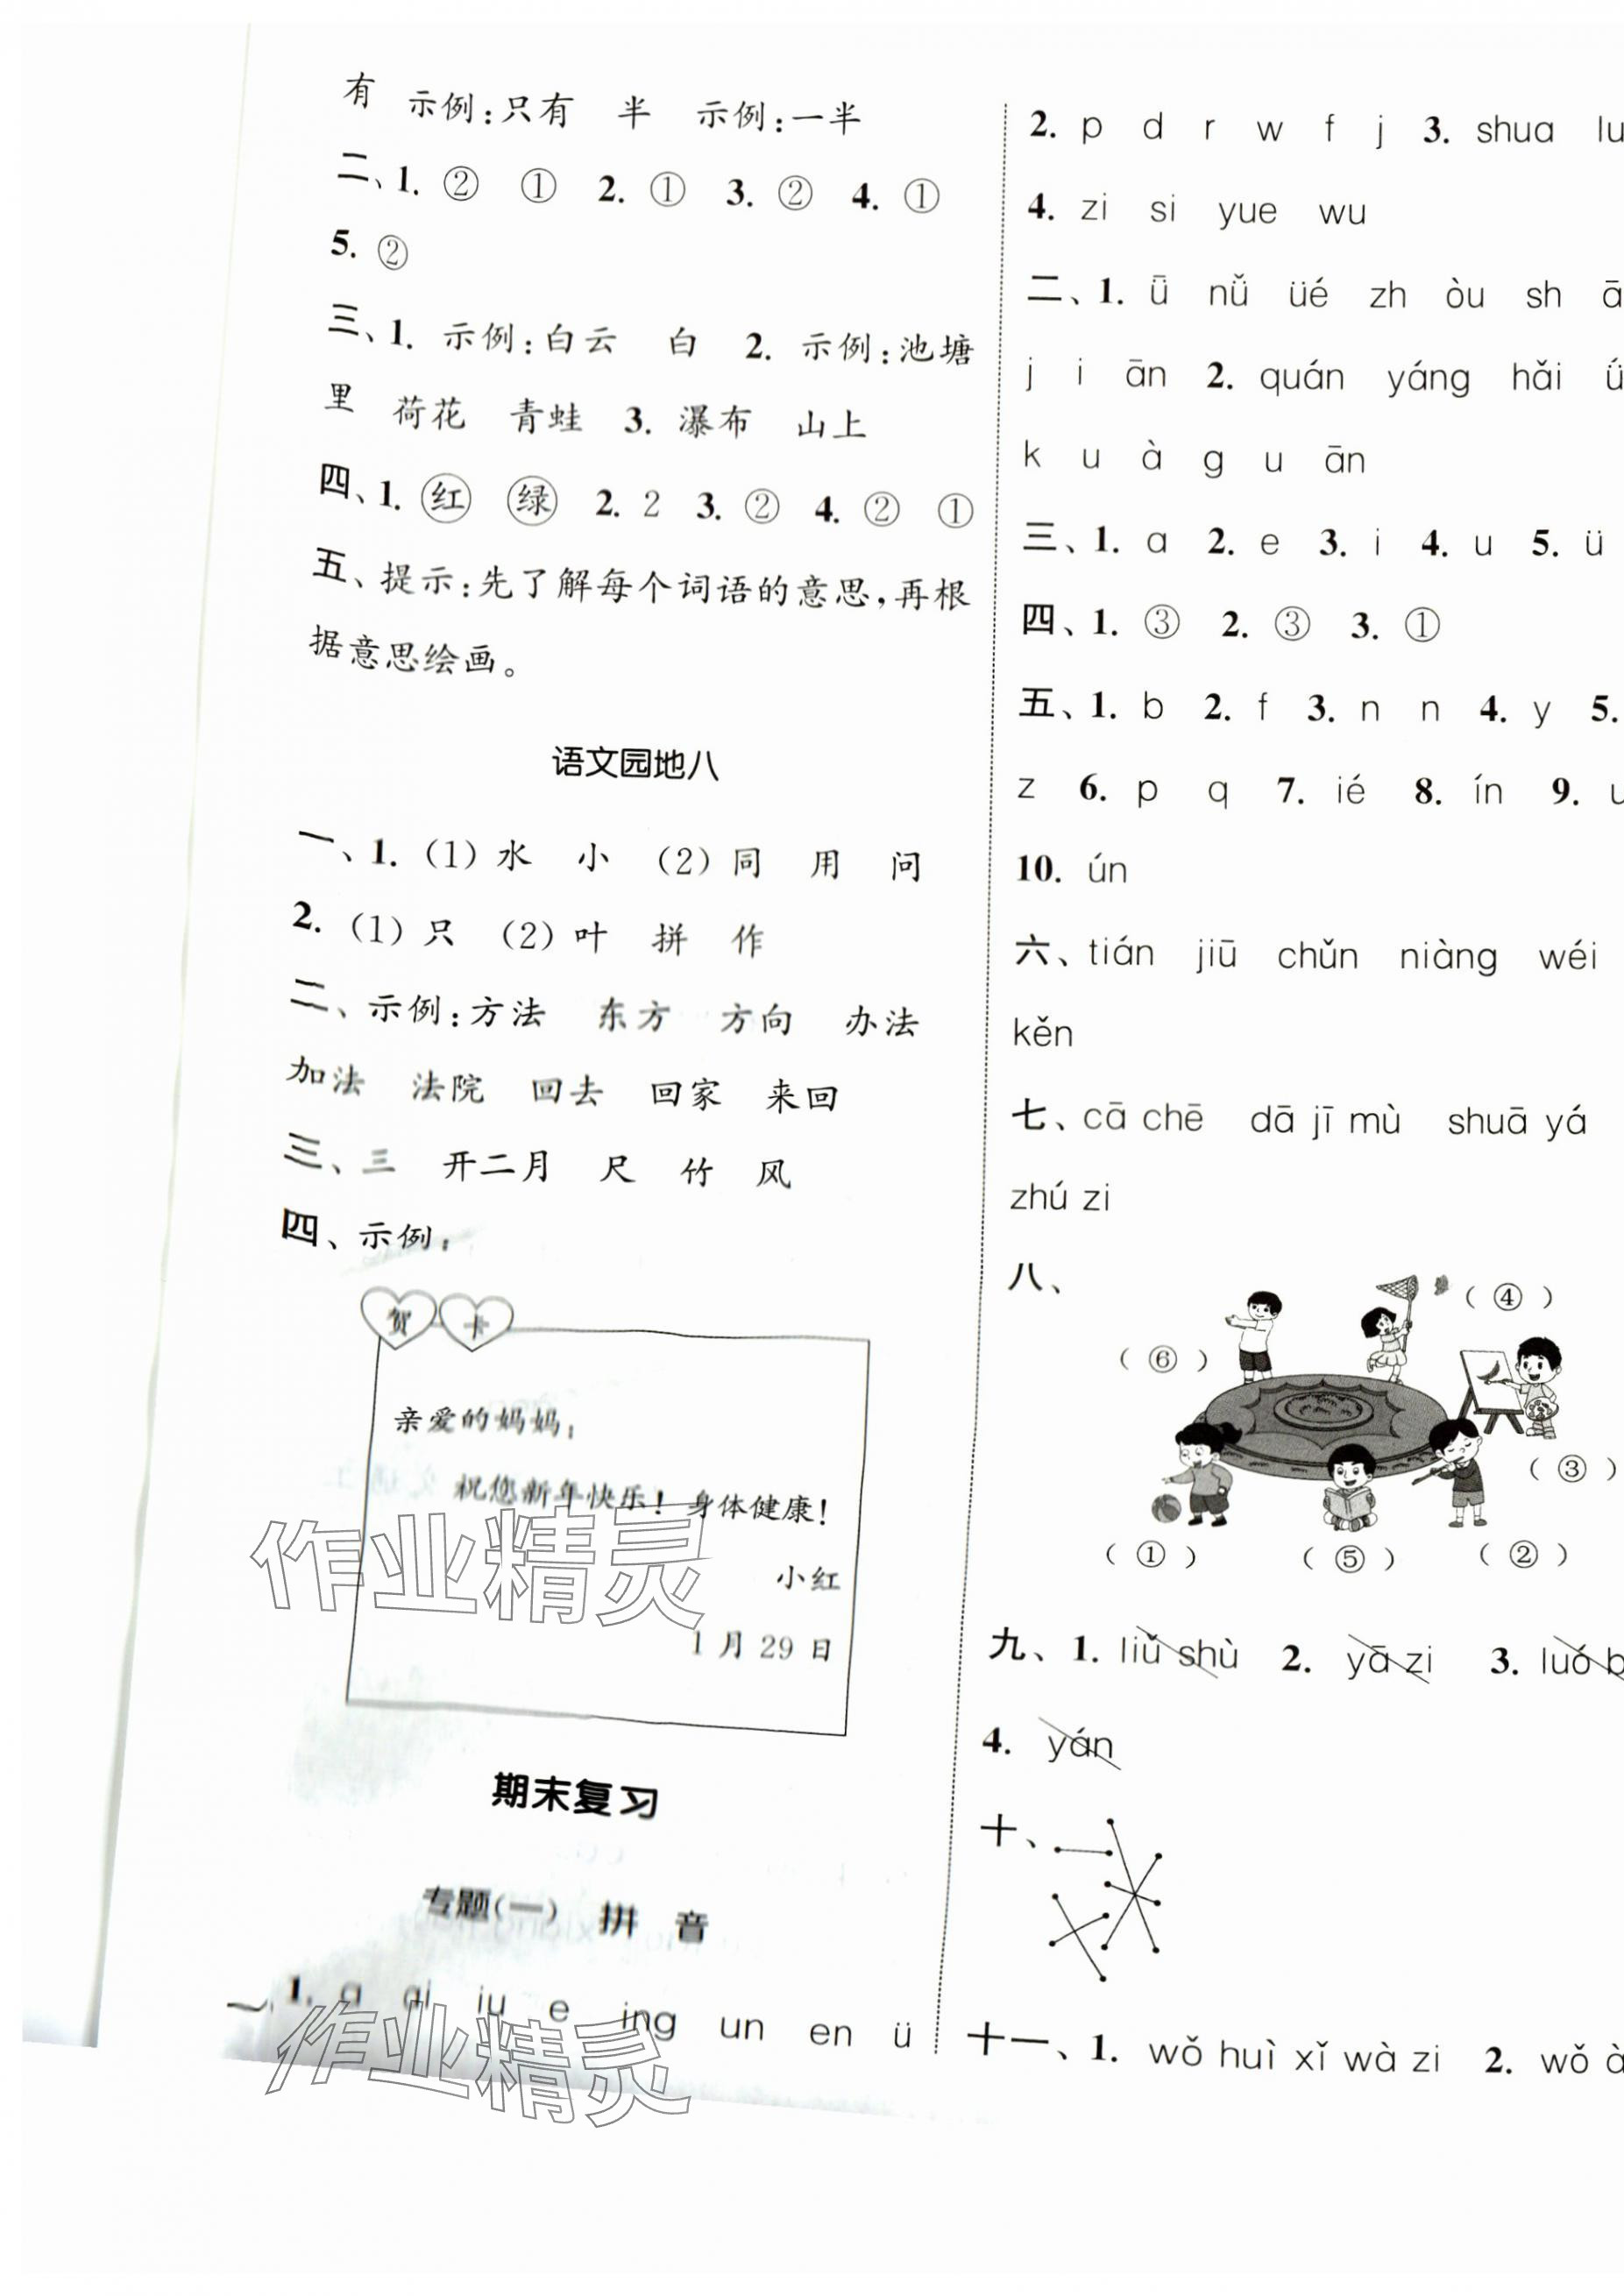 有 示例:只有 半 示例:一半
二、1. ② ① 2. ① 3. ② 4. ①
5. ②
三、1. 示例:白云 白 2. 示例:池塘
里 荷花 青蛙 3. 瀑布 山上
四、1. 红 绿 2. 2 3. ② 4. ② ①
五、提示:先了解每个词语的意思,再根
据意思绘画。
语文园地八
一、1. (1) 水 小 (2) 同 用 问
2. (1) 只 (2) 叶 拼 作
二、示例:方法 东方 方向 办法
加法 法院 回去 回家 来回
三、三 开二月 尺 竹 风
四、示例:
贺卡
亲爱的妈妈:
祝您新年快乐! 身体健康!
小红
1月29日
作业精灵
期末复习
专题(一) 拼 音
一、1. a ai iu e ing un en ü
作业精灵
2. p d r w f j 3. shua lu
4. zi si yue wu
二、1. ǖ nǚ üé zh òu sh ā
j i ān 2. quán yáng hǎi ú
k u à g u ān
三、1. a 2. e 3. i 4. u 5. ü
四、1. ③ 2. ③ 3. ①
五、1. b 2. f 3. n n 4. y 5.
z 6. p q 7. ié 8. ín 9. u
10. ún
六、tián jiū chǔn niàng wéi
kěn
七、cā chē dā jī mù shuā yá
zhú zi
八、
( ④ )
( ⑥ )
( ③ )
( ① ) ( ⑤ ) ( ② )
九、1. liǔ shù 2. yā zi 3. luó b
4. yán
十、
十一、1. wǒ huì xǐ wà zi 2. wǒ à